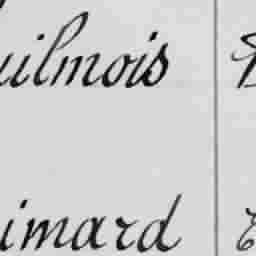 uilmois
imard